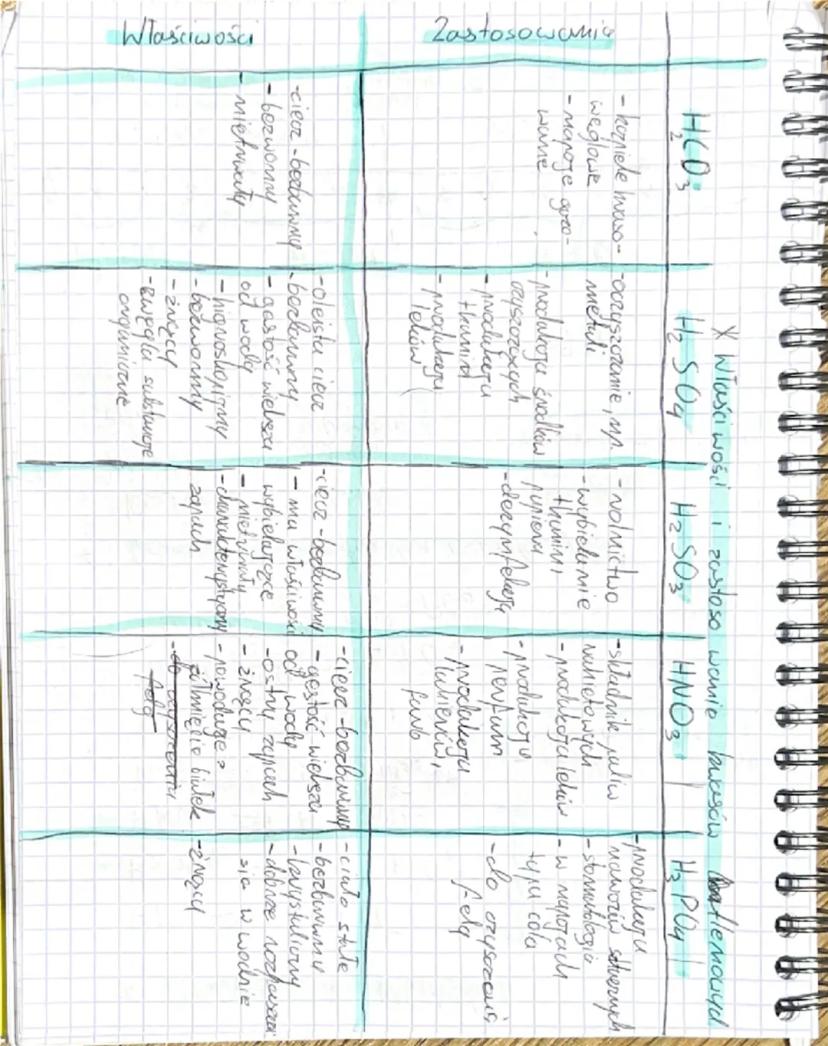 X Właściwości i zastosowanie kwasów tlenowych
H₂CO₃
H₂SO₄
H₂SO₃
HNO₃
H₃PO₄
Zastosowanie
- kąpiele kwaso-
węglowe
- napoje gazo-
wane
- oczyszczanie, np.
metali
- produkcja środków
czyszczących
- produkcja
tkanin
- produkcja
leków
- rolnictwo
- wybielanie
tkanin i
papieru
- dezynfekcja
- składnik paliw
rakietowych
- produkcja leków
- produkcja
perfum
- produkcja
lakierów,
farb
- produkcja
nawozów sztucznych
- stomatologia
- w napojach
typu cola
- do czyszczenia
felg
Właściwości
- ciecz - bezbarwny
- bezwonny
- nietrwały
- oleista ciecz
- bezbarwny
- gęstość większa
od wody
- higroskopijny
- bezwonny
- żrący
- zwęgla substancje
organiczne
- ciecz - bezbarwny
- ma właściwości
wybielające
- nietrwały
- charakterystyczny
zapach
- ciecz - bezbarwny
- gęstość większa
od wody
- ostry zapach
- żrący
- powoduje
białek
- do czyszczenia
felg
- ciało stałe
- bezbarwny
- krystaliczny
- dobrze rozpuszcza
się w wodzie
- żrący